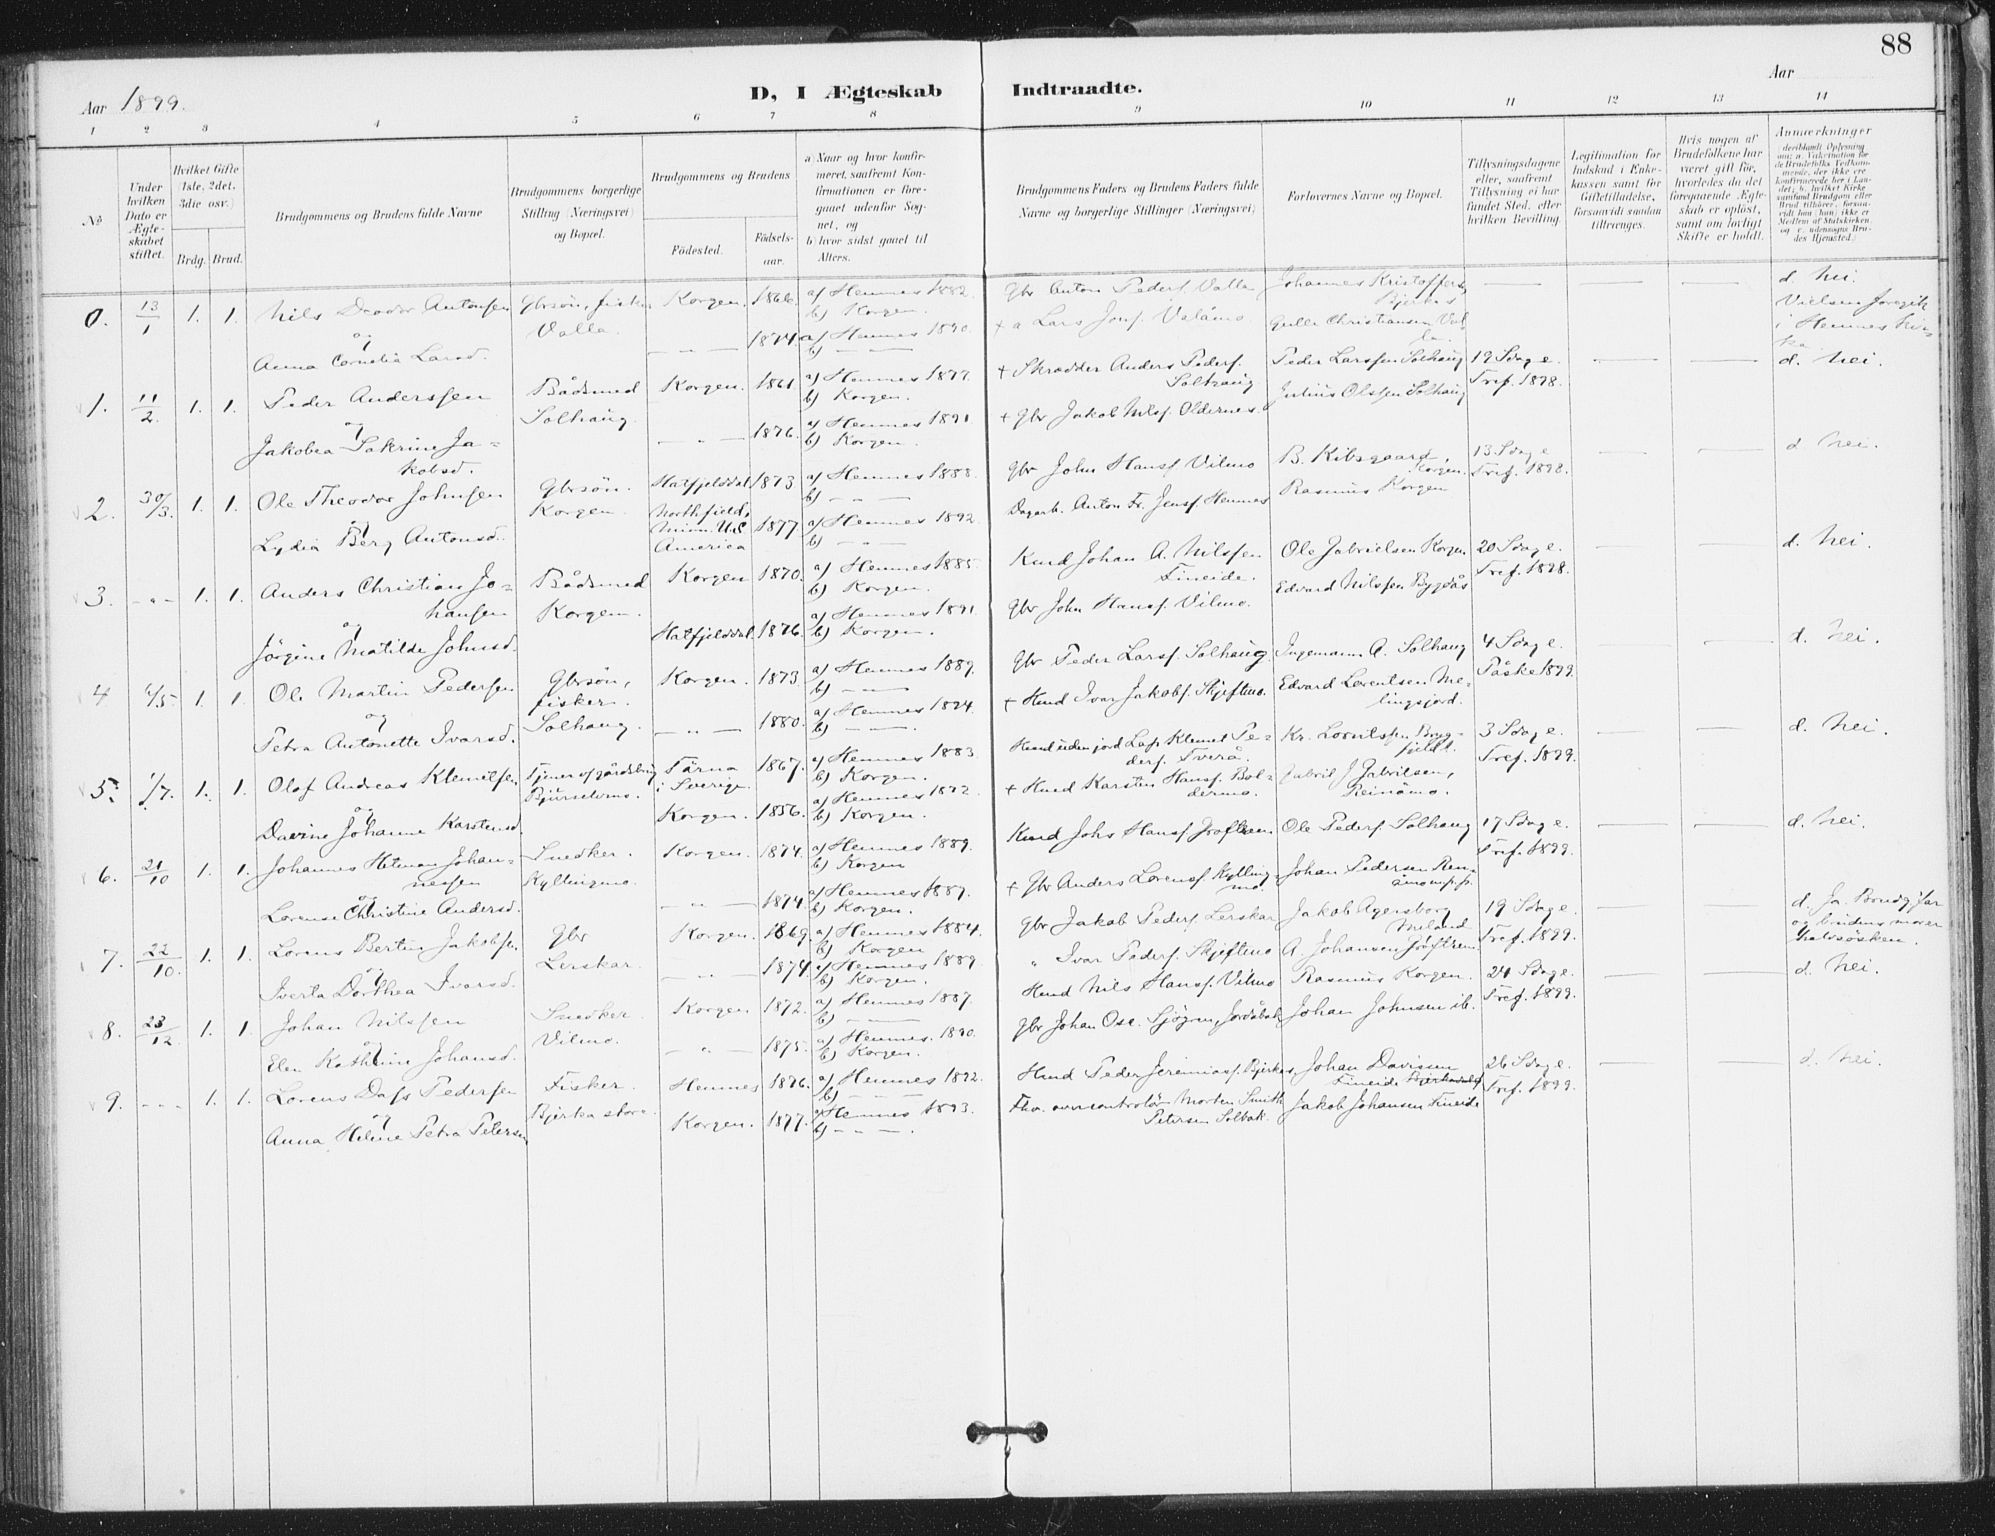 88
Aar 1899.
D, I Ægteskab Indtraadte.
Aar
1 2 3 4 5 6 7 8 9 10 11 12 13 14
No
Under hvilken Dato er Ægteskabet stiftet.
Hvilket Gifte 1ste, 2det, 3die osv.)
Brdg. Brud.
Brudgommens og Brudens fulde Navne
Brudgommens borgerlige Stilling (Næringsvei) og Bopæl.
Brudgommens og Brudens
Födested.
Födsels-aar.
a) Naar og hvor konfirmeret, saafremt Konfirmationen er foregaaet udenfor Sognet, og
b) hvor sidst gaaet til Alters.
Brudgommens Faders og Brudens Faders fulde Navne og borgerlige Stillinger (Næringsvei)
Forlovernes Navne og Bopæl.
Tillysningsdagene eller, saafremt Tillysning ei har fundet Sted, efter hvilken Bevilling.
Legitimation for Indskud i Enkekassen samt for Giftetilladelse, forsaavidt saadan tiltrænges.
Hvis nogen af Brudefolkene har været gift för, hvorledes da det foregaaende Ægteskab er oplöst, samt om lovligt Skifte er holdt.
Anmærkninger
0. 13/1 1. 1. Nils Antonsen Gbrsön, fisker Korgen. 1866 a) Hemnes 1882. Gbr Anton Peders. Valla Johannes Kristoffers. d. Nei.
og Valla. b) Korgen. Bjerkås Vielsen foregik
Anna Cornelia Larsd. — „ — 1874. a) Hemnes 1890. + Lars Valåmo Christiansen Valla. i Hemnes kirka.
1. 11/2. 1. 1. Peder Anderssen Bådsmed Korgen. 1861 a) Hemnes 1877. + Skrædder Anders Peders. Solhaug Peder Larssen Solhaug 19 Sdag e. Tref. 1898. — — d. Nei.
og Solhaug. b) Korgen.
Jakobea Sakrine Jakobsd. — „ — 1876. a) Hemnes 1891 + Gbr Jakob Nils. Oldernes. Julius Olssen Solhaug
b) Korgen.
2. 30/3. 1. 1. Ole Theodor Johnsen Gbrsön. Hatfjelddal 1873 a) Hemnes 1888. Gbr John Hans. Vilmo B. Kibsgaard, Korgen. 13 Sdag e. Tref. 1898. — — d. Nei.
og Korgen b) — „ —
Lydia Berg Antonsd. Northfield, Minn. America 1877 a) Hemnes 1892. Dagarb. Anton Fr. Jens. Hemnes Rasmus Korgen
b) — „ —
3. — „ — 1. 1. Anders Christian Johansen Bådsmed Korgen 1870. a) Hemnes 1885. Kmd Johan A. Nilssen Fineide. Ole Gabrielsen Korgen 20 Sdag e. Tref. 1898. — — d. Nei.
og Korgen. b) Korgen.
Jörgine Matilde Johnsd. Hatfjelddal. 1876. a) Hemnes 1891. Gbr John Hans. Vilmo. Edvard Nilssen Bygdås
b) Korgen.
4 1. 1. Ole Martin Pedersen Gbrsön, fisker. Korgen. 1873 a) Hemnes 1889. Gbr Peder Lars. Solhaug. Ingemann A. Solhaug 4 Sdag e. Påske 1899. — — d. Nei.
og Solhaug. b) — „ —
Petra Antonette Ivarsd. — „ — 1880. a) Hemnes 1894. + Kmd Ivar Jakobs. Skjeftmo. Edvard Lorentsen
b) — „ —
5. 1/7. 1. 1. Olaf Andreas Klemetsen Tärna i Sverige 1867. a) Hemnes 1883 Kmd uden jord Lap Klemet Peders. Tverå. Kr. Lorntsen Bryggfjeld. 3 Sdag e. Tref. 1899. — — d. Nei.
og b) Korgen.
Davine Johanne Karstensd. Korgen. 1856. a) Hemnes 1872 + Kmd Karsten Hans. Boldermo. Gabriel J Gabrielsen, Reinåmo.
b) Korgen.
6. 21/10 1. 1. Johannes Johannessen Snedker. Korgen. 1874. a) Hemnes 1889. Kmd Johs Hans. Ole Peders. Solhaug 17 Sdag e. Tref. 1899. — — d. Nei.
og Kyllingmo. b) Korgen
Lorense Christine Andersd. — „ — 1874. a) Hemnes 1889. + Gbr Anders Lorens. Kyllingmo. Johan Pedersen
b) Korgen.
7. 22/10. 1. 1. Lorens Bertin Jakobs. Gbr Korgen. 1869. a) Hemnes 1884. Gbr Jakob Peders. Lerskar Jakob Agersborg 19 Sdag e. Tref. 1899. — — d. Ja. Brudg. far
og Lerskar. b) Korgen og brudens morer
Iverta Dorthea Ivarsd. — „ — 1874. a) Hemnes 1889. „ Ivar Peders. Skjeftmo A. Johansen halvsösken.
b) Korgen.
8. 23/12 1. 1. Johan Nilssen Snedker. Korgen 1872. a) Hemnes 1887. Kmd Nils Hans. Vilmo Rasmus Korgen. 24 Sdag e. Tref. 1899. — — d. Nei.
og Vilmo. b) — „ —
Elen Kathrine Johansd. — „ — 1875. a) Hemnes. 1890. Gbr Johan Osc. Sjögren, Johan Johnsen ib.
b) Korgen.
9. - - - 1. 1. Lorens Dafs Pedersen Fisker. Hemnes 1876. a) Hemnes 1892. Kmd Peder Jeremias. Bjerkås Johan Davissen Fineide 26 Sdag e. Tref. 1899. — — d. Nei.
og Bjerka store. b) — „ —
Anna Helene Petra Petersen Korgen. 1877. a) Hemnes 1893. Fhv. overcontrolör Morten Smith Petersen Solbak. Jakob Johansen Fineide
b) - „ - .